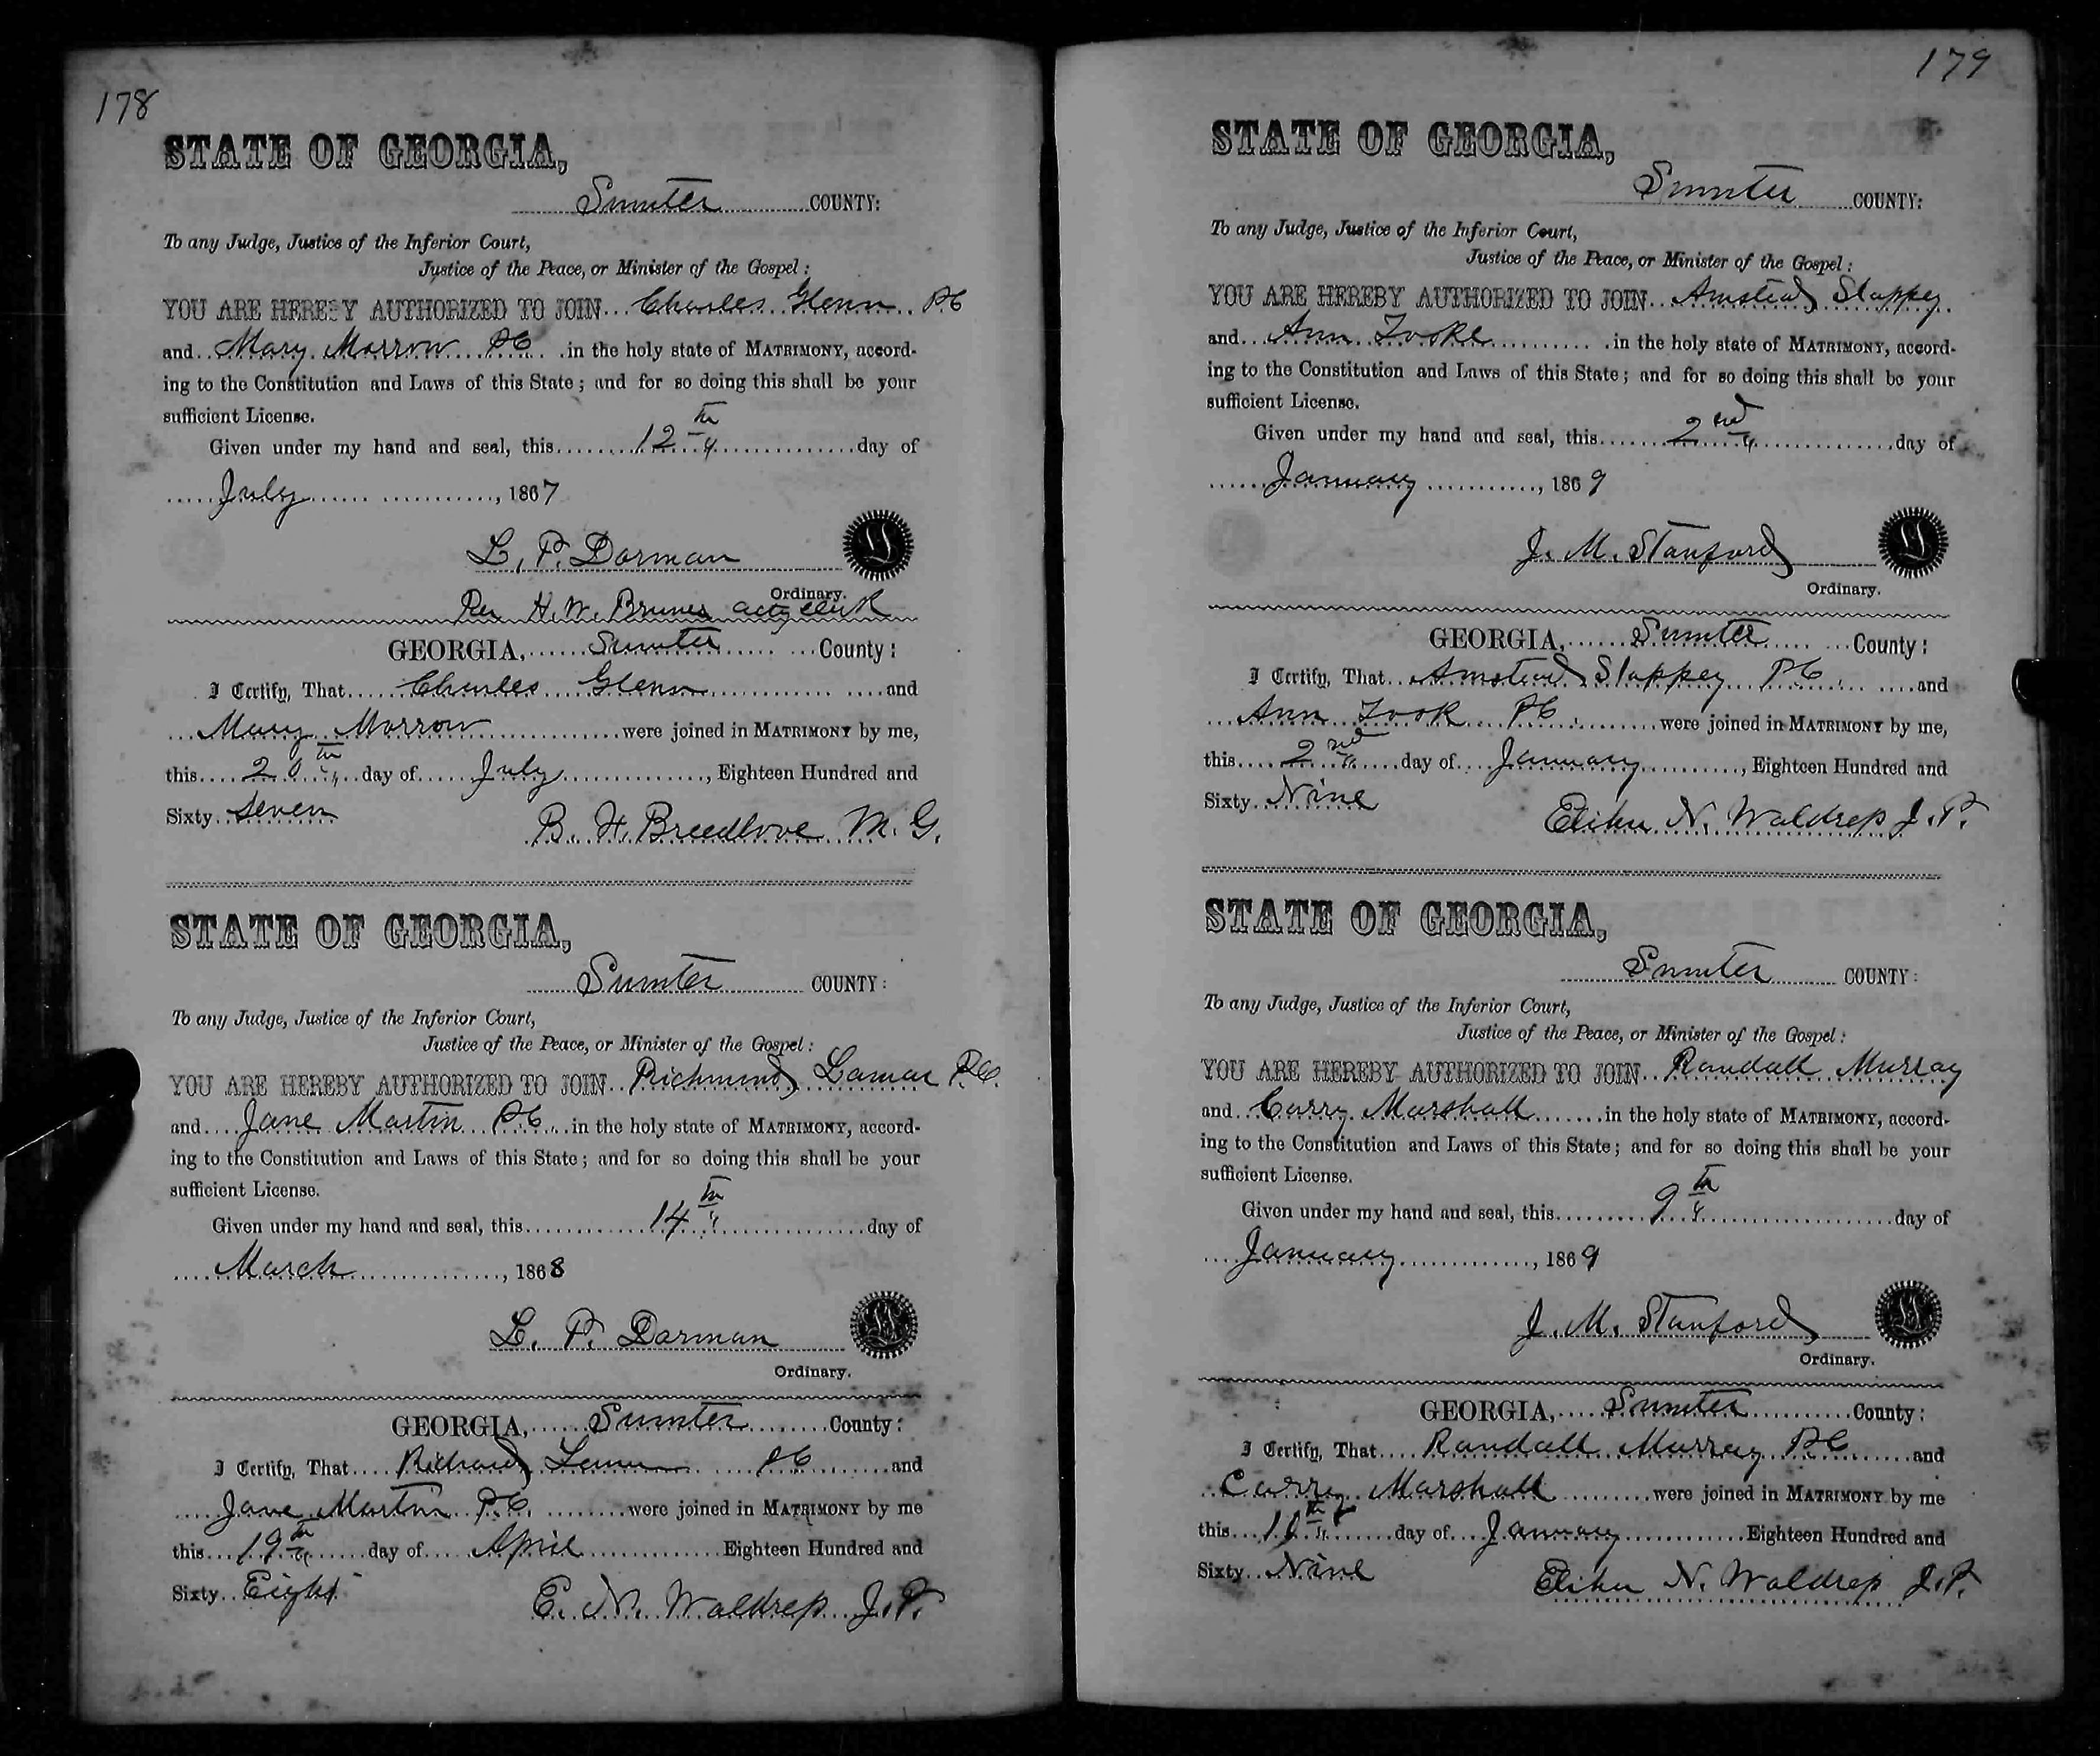 178
STATE OF GEORGIA,
Sumter COUNTY:
To any Judge, Justice of the Inferior Court,
Justice of the Peace, or Minister of the Gospel:
YOU ARE HEREBY AUTHORIZED TO JOIN Charles Glenn PC
and Mary Morrow PC in the holy state of MATRIMONY, accord-
ing to the Constitution and Laws of this State; and for so doing this shall be your
sufficient License.
Given under my hand and seal, this 12th day of
July, 1867
L. P. Dorman
Ordinary.
Per H. W. Bruner actg clerk
GEORGIA, Sumter County:
I Certify, That Charles Glenn and
Mary Morrow were joined in MATRIMONY by me,
this 20th day of July, Eighteen Hundred and
Sixty Seven
B. H. Breedlove M. G.
STATE OF GEORGIA,
Sumter COUNTY:
To any Judge, Justice of the Inferior Court,
Justice of the Peace, or Minister of the Gospel:
YOU ARE HEREBY AUTHORIZED TO JOIN Richmond Lamar P.C.
and Jane Martin PC in the holy state of MATRIMONY, accord-
ing to the Constitution and Laws of this State; and for so doing this shall be your
sufficient License.
Given under my hand and seal, this 14th day of
March, 1868
L. P. Dorman
Ordinary.
GEORGIA, Sumter County:
I Certify, That Richard Lamar PC and
Jane Martin P.C. were joined in MATRIMONY by me
this 19th day of April Eighteen Hundred and
Sixty Eight
E. N. Waldrep J. P.
179
STATE OF GEORGIA,
Sumter COUNTY:
To any Judge, Justice of the Inferior Court,
Justice of the Peace, or Minister of the Gospel:
YOU ARE HEREBY AUTHORIZED TO JOIN Amstead Slappey
and Ann Tooke in the holy state of MATRIMONY, accord-
ing to the Constitution and Laws of this State; and for so doing this shall be your
sufficient License.
Given under my hand and seal, this 2nd day of
January, 1869
J. M. Stanford
Ordinary.
GEORGIA, Sumter County:
I Certify, That Amstead Slappey PC and
Ann Took PC were joined in MATRIMONY by me,
this 2nd day of January, Eighteen Hundred and
Sixty Nine
Elihu N. Waldrep J. P.
STATE OF GEORGIA,
Sumter COUNTY:
To any Judge, Justice of the Inferior Court,
Justice of the Peace, or Minister of the Gospel:
YOU ARE HEREBY AUTHORIZED TO JOIN Randall Murray
and Carry Marshall in the holy state of MATRIMONY, accord-
ing to the Constitution and Laws of this State; and for so doing this shall be your
sufficient License.
Given under my hand and seal, this 9th day of
January, 1869
J. M. Stanford
Ordinary.
GEORGIA, Sumter County:
I Certify, That Randall Murray PC and
Carry Marshall were joined in MATRIMONY by me
this day of January Eighteen Hundred and
Sixty Nine
Elihu N. Waldrep J. P.